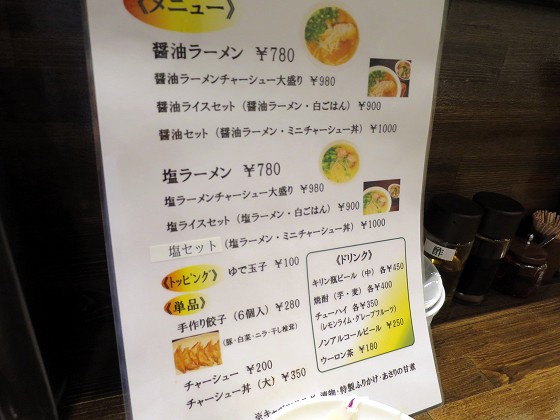 《メニュー》
醤油ラーメン ￥780
醤油ラーメンチャーシュー大盛り ￥980
醤油ライスセット（醤油ラーメン・白ごはん）￥900
醤油セット（醤油ラーメン・ミニチャーシュー丼）￥1000
塩ラーメン ￥780
塩ラーメンチャーシュー大盛り ￥980
塩ライスセット（塩ラーメン・白ごはん）￥900
塩セット（塩ラーメン・ミニチャーシュー丼）￥1000
《トッピング》 ゆで玉子 ￥100
《単品》
手作り餃子（6個入）￥280
（豚・白菜・ニラ・干し椎茸）
チャーシュー ￥200
チャーシュー丼（大）￥350
《ドリンク》
キリン瓶ビール（中）各￥450
焼酎（芋・麦）各￥400
チューハイ 各￥350
（レモンライム・グレープフルーツ）
ノンアルコールビール ￥250
ウーロン茶 ￥180
漬物・特製ふりかけ・あさりの甘煮
酢